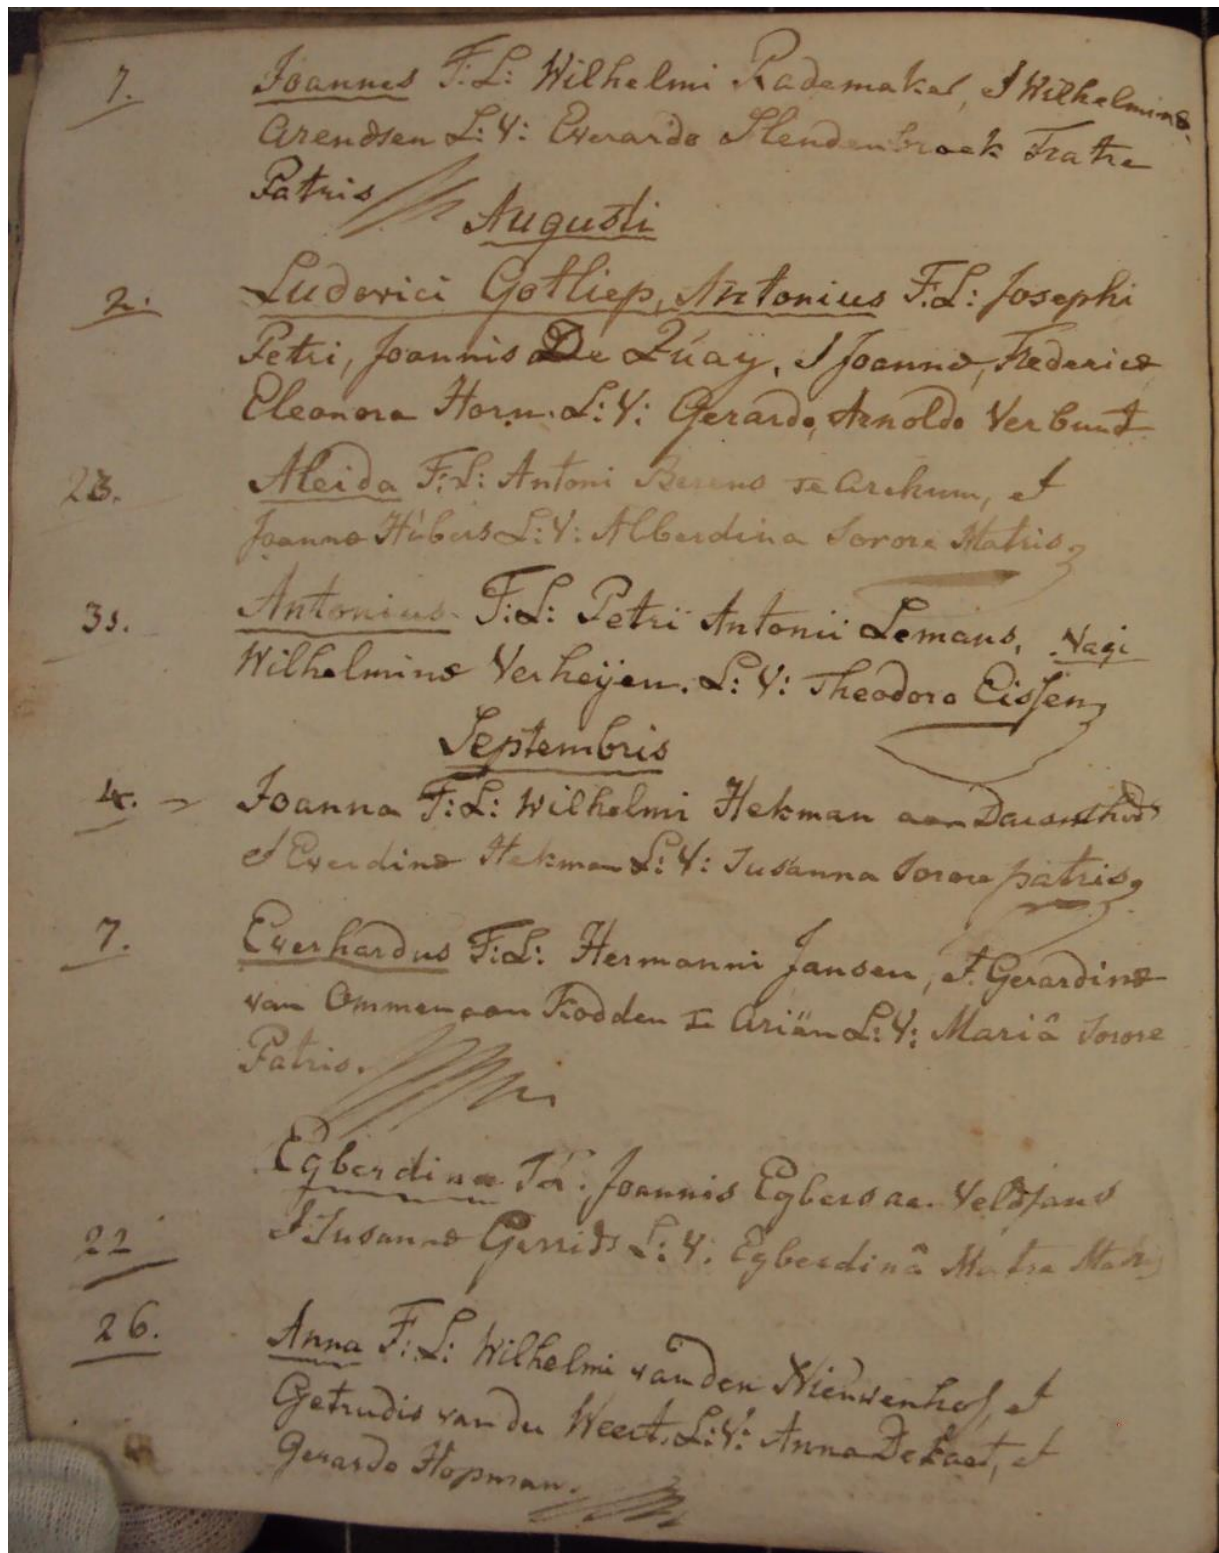 7. Joannes F: L: Wilhelmi Rademaker, & Wilhelminæ
Arendsen L: V: Everardo Slendenbroek Fratre
Patris
Augusti
2. Ludovici Gotliep, Antonius F: L: Josephi
Petri, Joannis De Quaÿ, & Joannæ, Fredericæ
Eleonora Horn. L: V: Gerardo, Arnoldo Verbunt
23. Aleida F: L: Antoni Berens te Archum, et
Joannæ Hübers L: V: Alberdina Sorore Matris
31. Antonius F: L: Petri Antonii Lemans, Nagi
Wilhelminæ Verheÿen. L: V: Theodoro Eissen
Septembris
4. Joanna F: L: Wilhelmi Hekman aan
& Everdinæ Hekman L: V: Susanna Sorore patris
7. Everhardus F: L: Hermanni Jansen, & Gerardinæ
van Ommen aan Rodden te Ariän L: V: Mariâ Sorore
Patris.
Egberdina Joannis Egbers aa. Veldjans
22 & Susannæ Gerrids L: V: Egberdinâ Matre
26. Anna F: L: Wilhelmi van den Nieuwenhof, et
Getrudis van du Weert. L: V: Anna De Kaet, et
Gerardo Hopman.